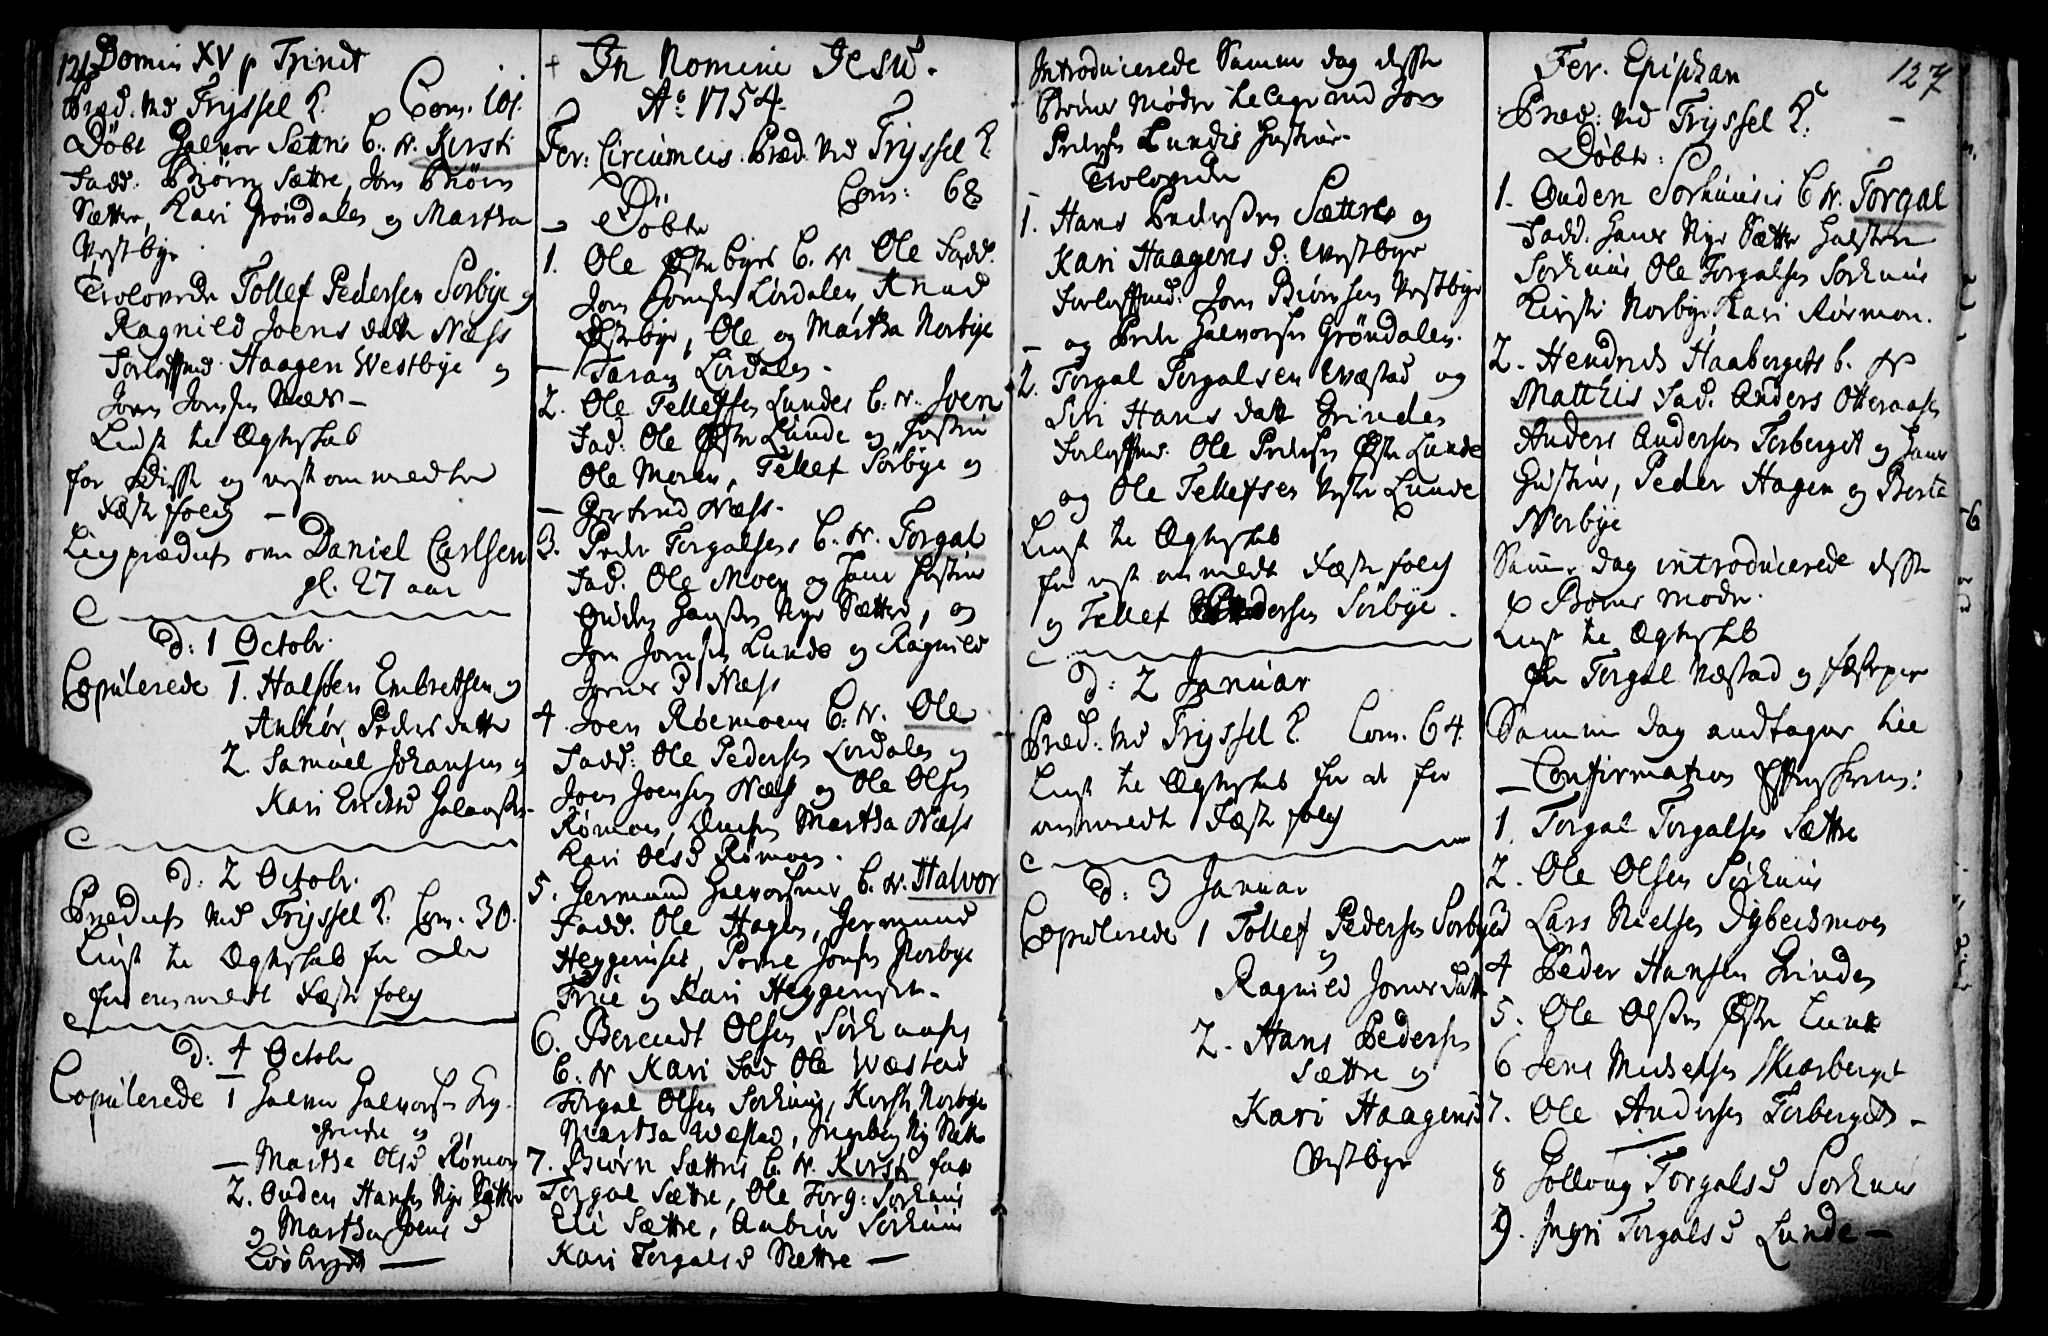 Domin XV p Trinit
Præd. ved Tryssel K. Com. 101.
Døbt Halvor Sættris B. N. Kirsti
Fadd. Biørn Sættre, Jon Biørn
Sættre, Kari Grøndalen og Martha
Vestbye
Trolovede Tollef Pedersen Sørbye og
Ragnild Joens datt Næss
Forløffmd. Haagen Westbye og
Joen Jonsen Næss —
Liust til Ægteskab
for Disse og nest anmeldte
Fæste folch —
Liigprædicket over Daniel Carlsen
gl. 27 aar
d: 1 Octobr.
Copulerede 1. Halsten Embretsen og
Anbiør Peders datter
2. Samuel Johansen og
Kari Erichsd
d: 2 Octobr.
Prædicket ved Tryssel K. Com. 30.
Liust til Ægteskab for de
før anmeldte Fæste folch
d: 4 Octobr
Copulerede 1 Halvor Halvorsen Ny-
og
— Martha Olsd Rømoen
2. Ouden Hansen Nye Sætter
og Martha Joens d
—
+ In Nomine Jesu.
Ao 1754.
Fer: Circumcis. Præd. ved Tryssel K
Com: 68
— Døbte
1. Ole Østebyes B. N. Ole Fadd.
Jon Jonsen Lørdalen, Knud
Østebye, Ole og Martha Norbye
— Taran Lørdalen.
2. Ole Tellefsen Lundes B. N. Joen
Fad. Ole Østre Lunde og Hustru
Ole Moren, Tellef Sørbye og
— Gertrud Næss.
3. Peder Torgalsens B. N. Torgal
Fad. Ole Moen og hans Hustru
Ouden Hansen Nye Sætter, og
Jon Jonsen Lunde og Ragnild
Joens d Næss
4 Joen Røemoens B. N. Ole
Fadd: Ole Pedersen Lørdalen og
Joen Joensen Næss og Ole Olsen
Rømoen, Martha Næss
Kari Olsd Rømoen.
5. Germund Halvorsens B. N. Halvor
Fadd. Ole Hagen, Germund
Heggeriset, Joensen Norbye
og Kari Heggeriset.
6. Berendt Olsen Sørhuusets
B. N Kari Fad Ole Wæstad
Torgal Olsen Sørhuus, Kirsti Norbye
Martha Wæstad, Ingebor Ny Sætter
7. Biørn Sættris B. N. Kirsti Fad
Torgal Sættre, Ole Torg: Sørhuus
Eli Sættre, Anbiør Sørhuus
Kari Torgals d Sættre —
Introducerede Samme dag disse
Børns Mødre tillige med Jon
Pedersen Lundes Hustrue
Trolovede
1. Hans Pedersen Sættre og
Kari Haagens D: Westbye
Forløffmd: Jon Biørnsen Vestbye
— og Peder Halvorsen Grøndalen.
2. Torgal Torgalsen Wæstad og
Siri Hans datt Grinden
Forløffmd. Ole Pedersen Østre Lunde
og Ole Tellefsen Vestre Lunde
Liust til Ægteskab
for nest anmeldte Fæste folch
og Tellef Pedersen Sørbye.
d: 2 Januar
Præd. ved Tryssel K. Com. 64.
Liust til Ægteskab for de før
anmeldte Fæste folch
d: 3 Januar
Copulerede 1 Tollef Pedersen Sørbye
og
Ragnild Joens Datt
2. Hans Pedersen
Sættre og
Kari Haagens d
Vestbye
127
Fer. Epiphan
Præd: ved Tryssel K. —
Døbte:
1. Ouden Sørhuuses B N. Torgal
Fadd. Hans Nye Sætter Halsten
Sørhuus Ole Torgalsen Sørhuus
Kirsti Norbye Kari Rømoen.
2. Hendrich Haabergets b. N
Matthis Fad. Anders Otteraasen
Anders Andersen Torberget og hans
Hustrue, Peder Hagen og Berte
Norbye
Samme dag introducerede disse
2 Børns mødre.
Liust til Ægteskab
for Torgal Wæstad og Fæstepige
Samme dag andtagen til
— Confirmation Efterskrevne:
1. Torgal Torgalsen Sættre
2. Ole Olsen Sørhuus
3 Lars Nielsen Dybeedsmoen
4 Peder Hansen Grinden
5. Ole Olsen Østre Lunde
6 Jens Michelsen Skiærberget
7. Ole Andersen Torberget —
8 Gollaug Torgals d Sørhuus
9. Ingri Torgals d Lunde —